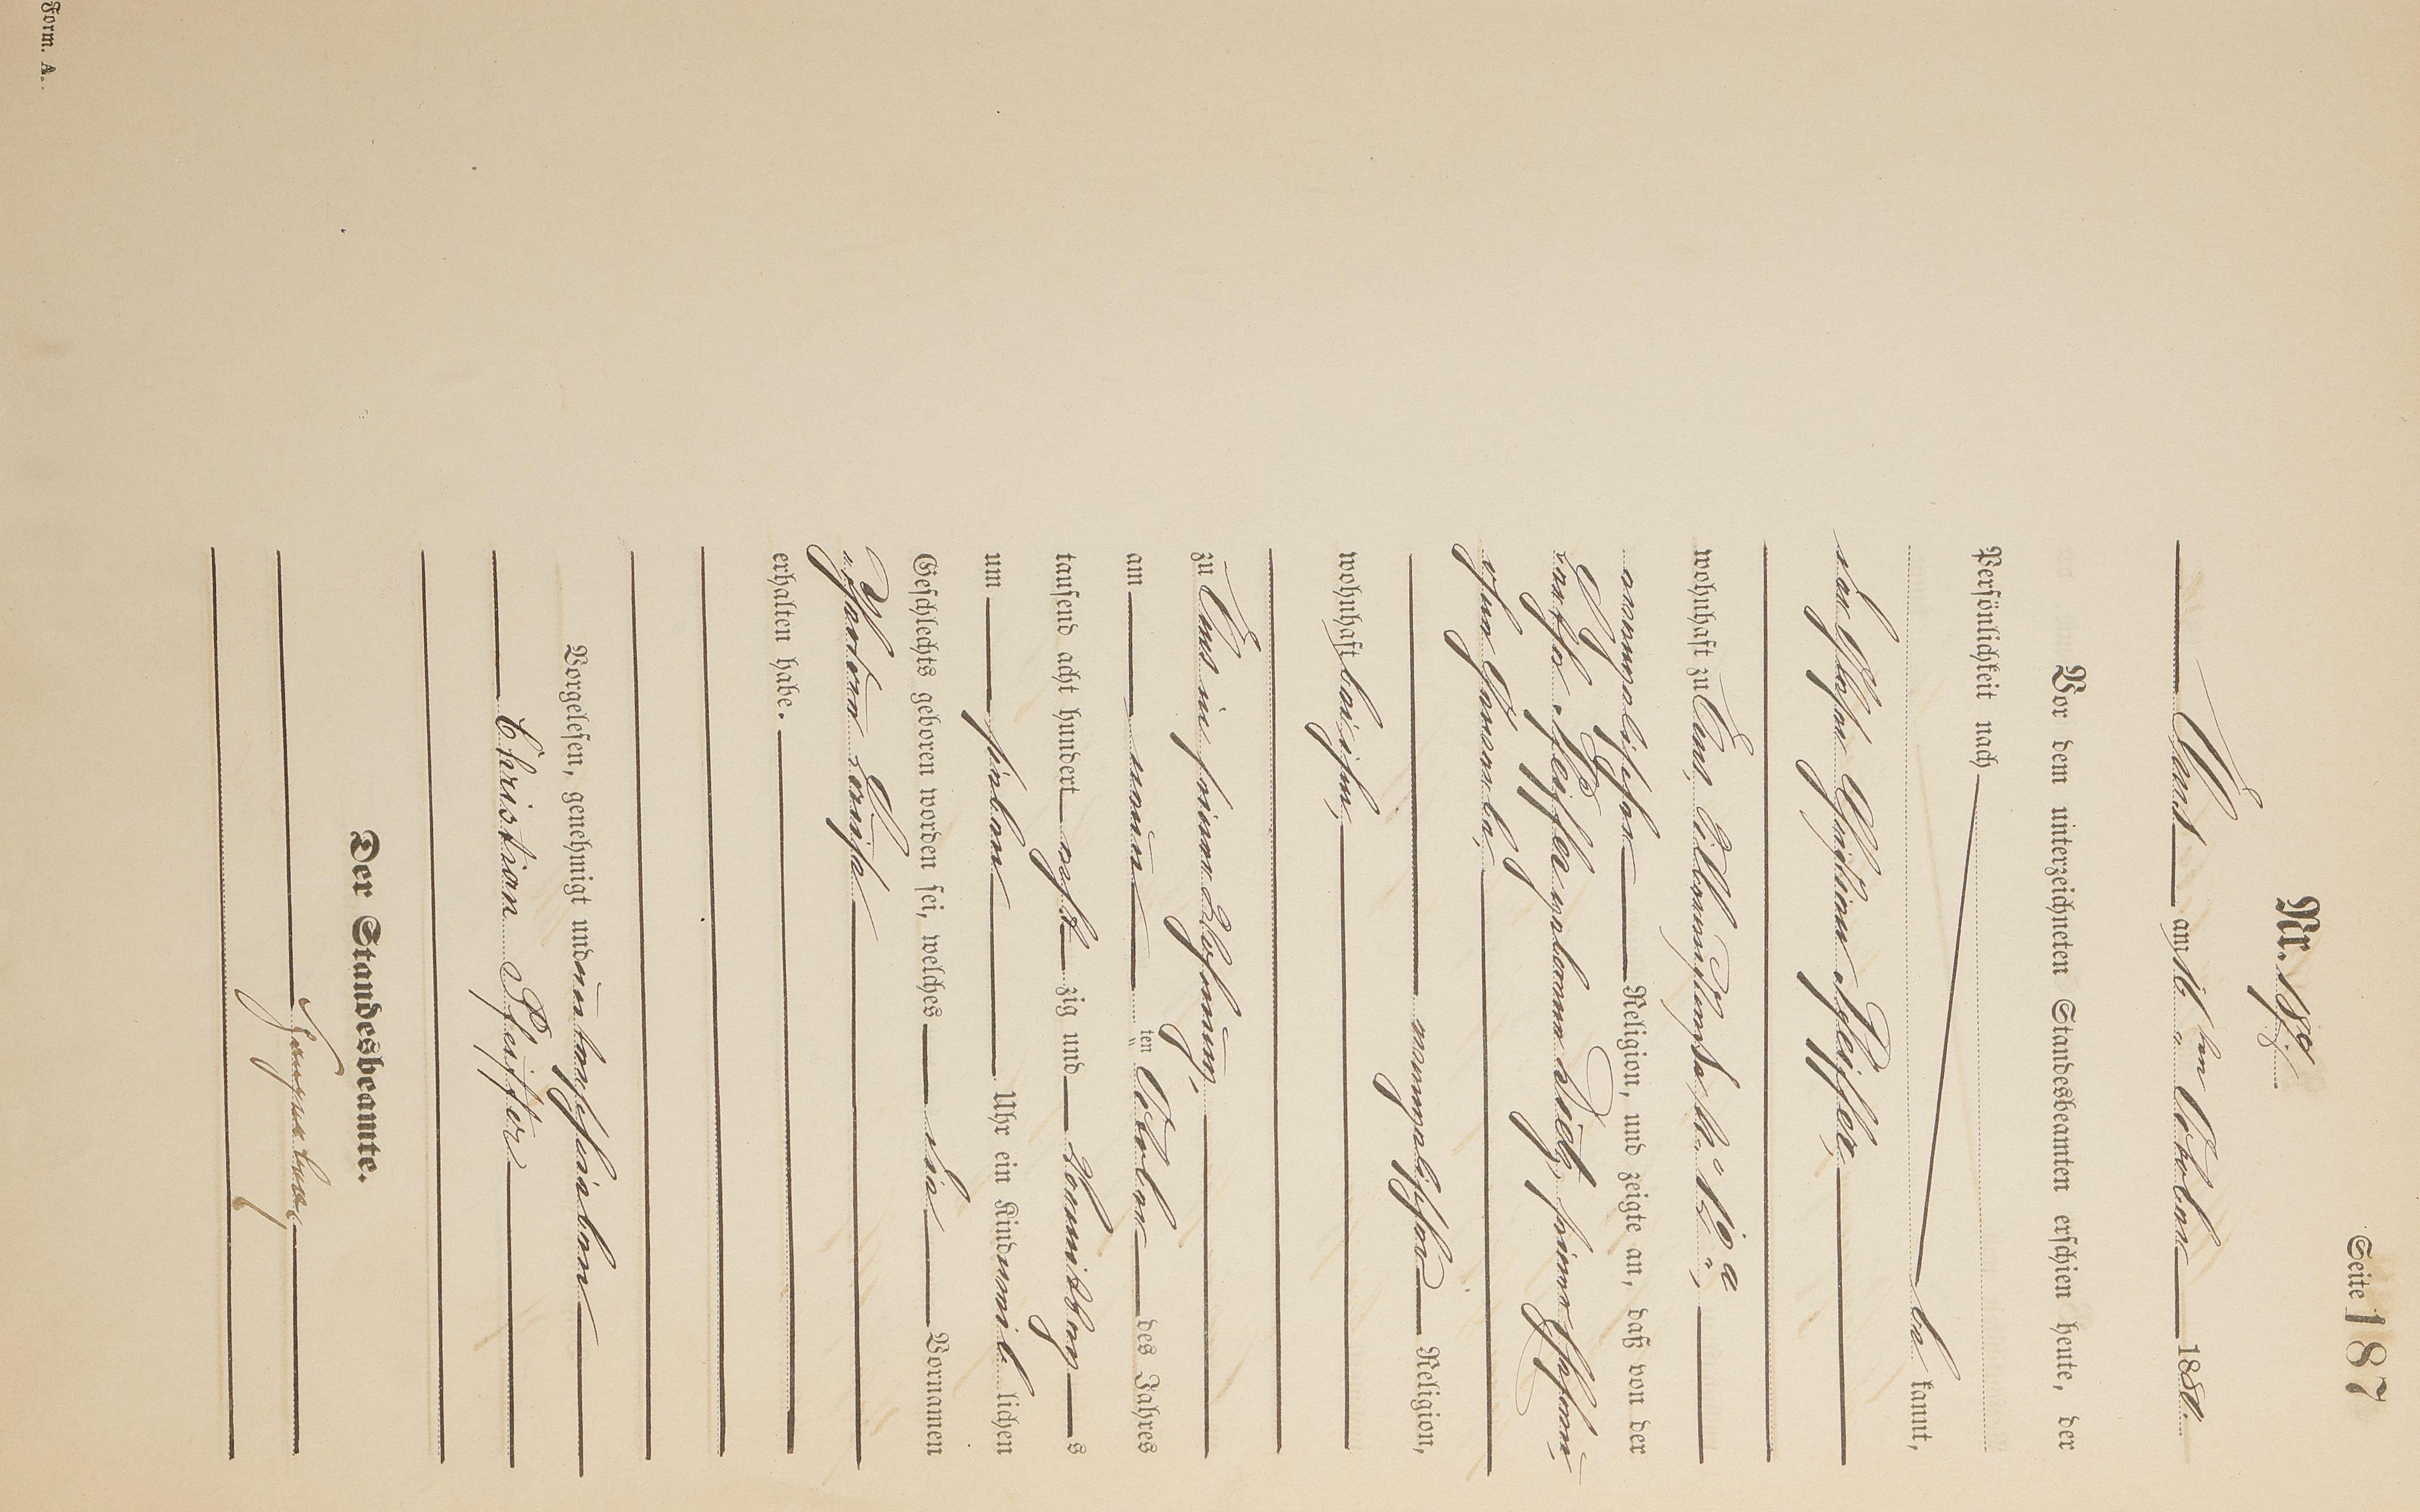 Seite 187
Nr. 187.
Ems am 16ten October 1880.
Vor dem unterzeichneten Standesbeamten erschien heute, der
Persönlichkeit nach
be kannt,
der Christian Pfeiffer,
wohnhaft zu Ems,
evangelischer Religion, und zeigte an, daß von der
Pfeiffer geborenen seiner Ehefrau,
ohne Gewerbe,
evangelischer Religion,
wohnhaft bei ihm,
zu Ems in seiner Wohnung,
am neun ten October des Jahres
tausend acht hundert acht zig und Vormittags
um sieben Uhr ein Kind weib lichen
Geschlechts geboren worden sei, welches die Vornamen
Luise
erhalten habe.
Vorgelesen, genehmigt und unterschrieben
Christian Pfeiffer
Der Standesbeamte.
Form. A.